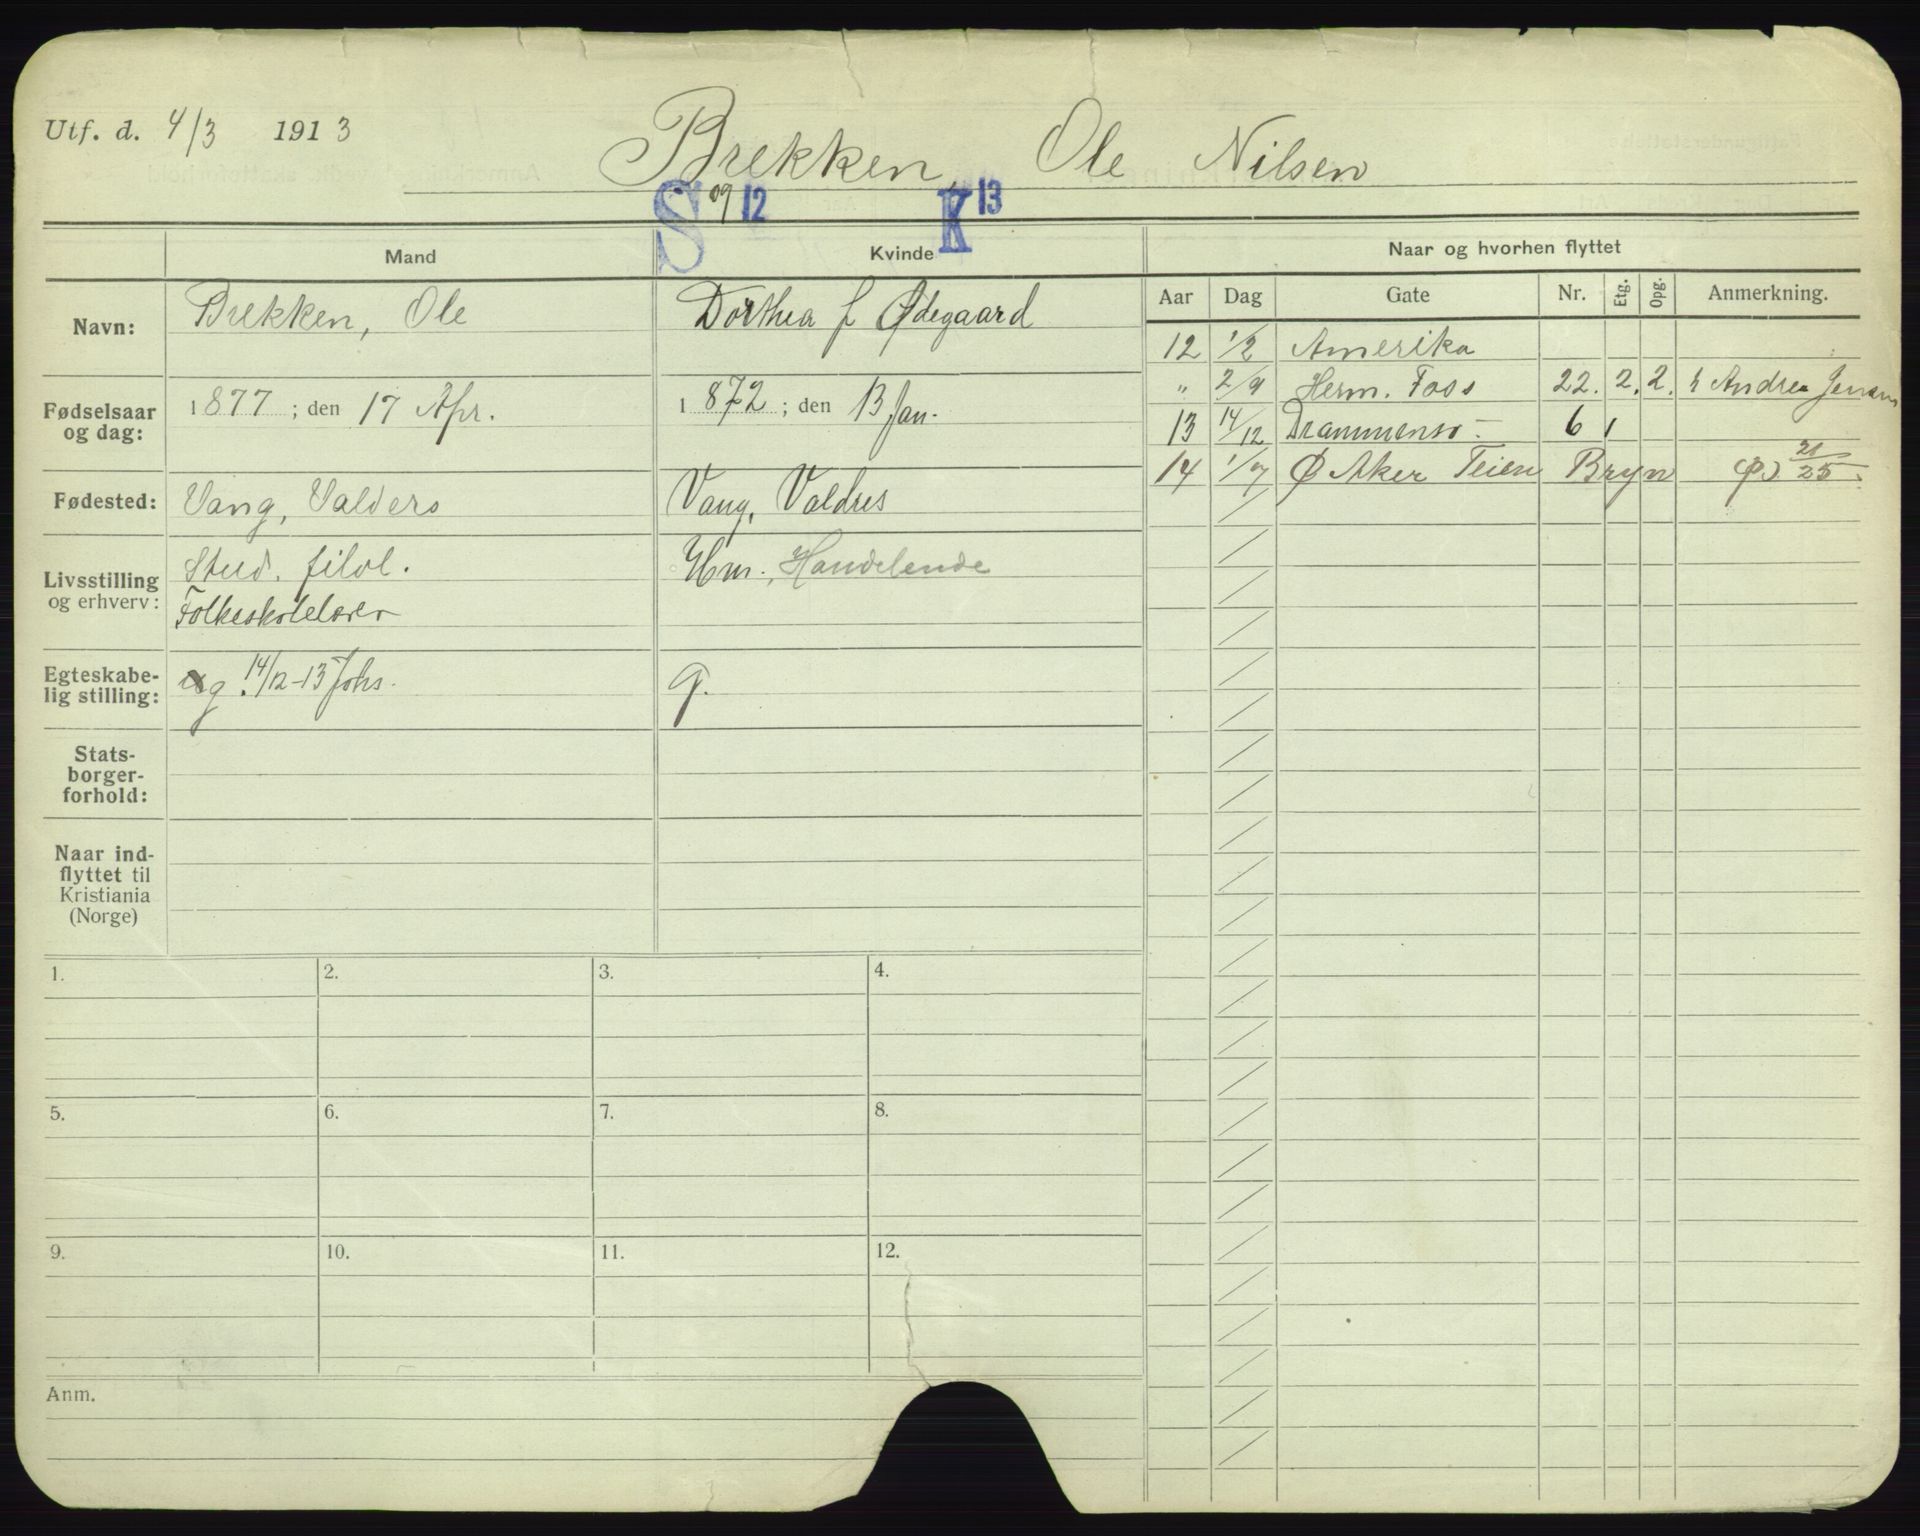 Utf. d. 4/3 1913
Brekken, Ole Nilsen
S 09 12 K 13
Mand
Kvinde
Navn:
Brekken, Ole
Dorthea f Ødegaard
Fødselsaar og dag:
1877; den 17 Apr.
1872; den 13 Jan.
Fødested:
Vang, Valders
Vang, Valdres
Livsstilling og erhverv:
Stud. filol.
Folkeskolelærer
Hm., Handelende
Egteskabelig stilling:
g. 14/12-13 Johs.
g.
Stats-
borger-
forhold:
Naar ind-
flyttet til
Kristiania
(Norge)
1. 2. 3. 4.
5. 6. 7. 8.
9. 10. 11. 12.
Anm.
Naar og hvorhen flyttet
Aar Dag Gate Nr. Etg. Opg. Anmerkning.
12 1/2 Amerika
" 2/9 Herm. Foss 22. 2. 2. h Andrea Jensen
13 14/12 Drammensv- 6 1
14 1/7 Ø Aker Teien Bryn 21/25